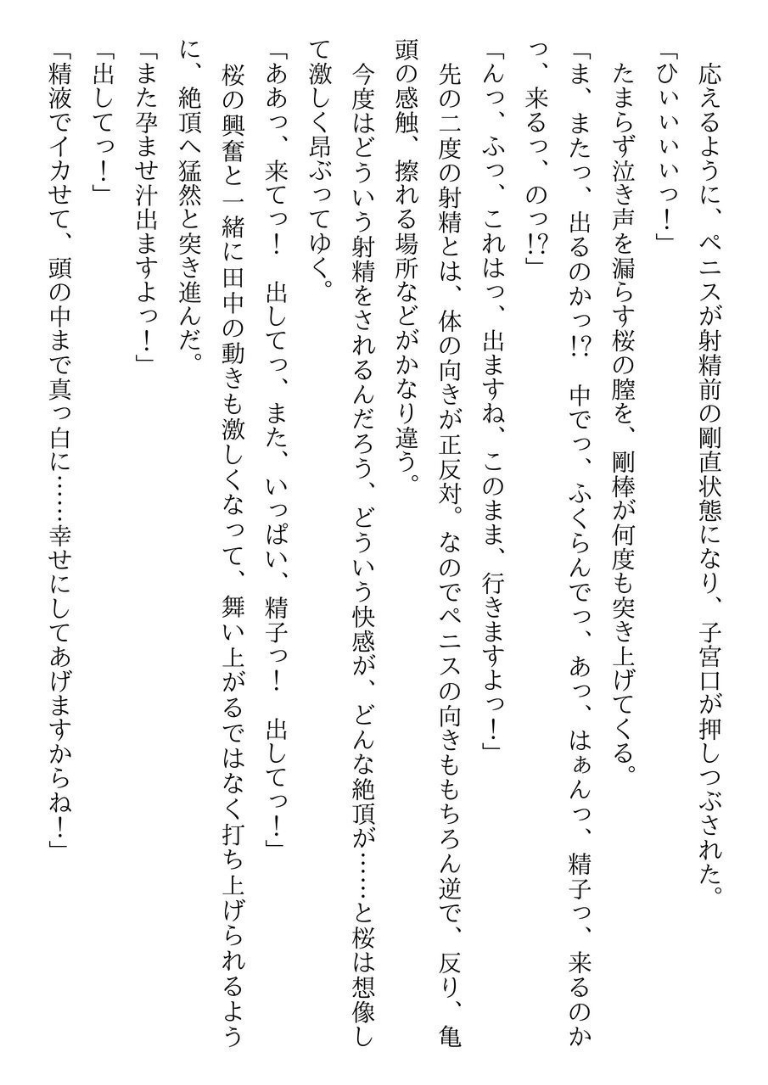 応えるように、ペニスが射精前の剛直状態になり、子宮口が押しつぶされた。
「ひぃぃぃぃっ！」
　たまらず泣き声を漏らす桜の膣を、剛棒が何度も突き上げてくる。
「ま、またっ、出るのかっ!?　中でっ、ふくらんでっ、あっ、はぁんっ、精子っ、来るのか
っ、来るっ、のっ!?」
「んっ、ふっ、これはっ、出ますね、このまま、行きますよっ！」
　先の二度の射精とは、体の向きが正反対。なのでペニスの向きももちろん逆で、反り、亀
頭の感触、擦れる場所などがかなり違う。
　今度はどういう射精をされるんだろう、どういう快感が、どんな絶頂が……と桜は想像し
て激しく昂ぶってゆく。
「ああっ、来てっ！　出してっ、また、いっぱい、精子っ！　出してっ！」
　桜の興奮と一緒に田中の動きも激しくなって、舞い上がるではなく打ち上げられるよう
に、絶頂へ猛然と突き進んだ。
「また孕ませ汁出ますよっ！」
「出してっ！」
「精液でイカせて、頭の中まで真っ白に……幸せにしてあげますからね！」